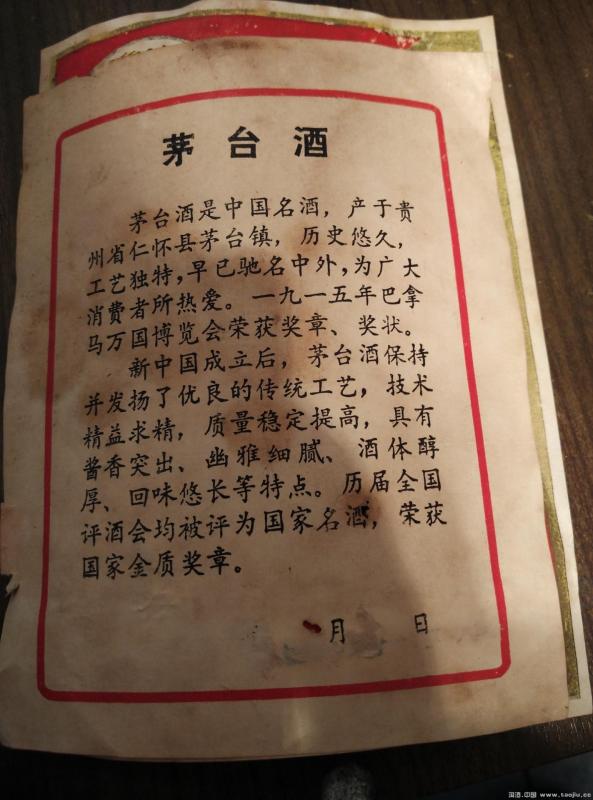 茅台酒
茅台酒是中国名酒，产于贵
州省仁怀县茅台镇，历史悠久，
工艺独特，早已驰名中外，为广大
消费者所热爱。一九一五年巴拿
马万国博览会荣获奖章、奖状。
新中国成立后，茅台酒保持
并发扬了优良的传统工艺，技术
精益求精，质量稳定提高，具有
酱香突出、幽雅细腻、酒体醇
厚、回味悠长等特点。历届全国
评酒会均被评为国家名酒，荣获
国家金质奖章。
月 日
淘酒.中国 www.taojiu.cc